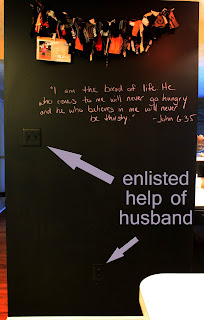 "I am the bread of life. He
who comes to me will never go hungry
and he who believes in me will never
be thirsty."
-John 6:35
enlisted
help of
husband